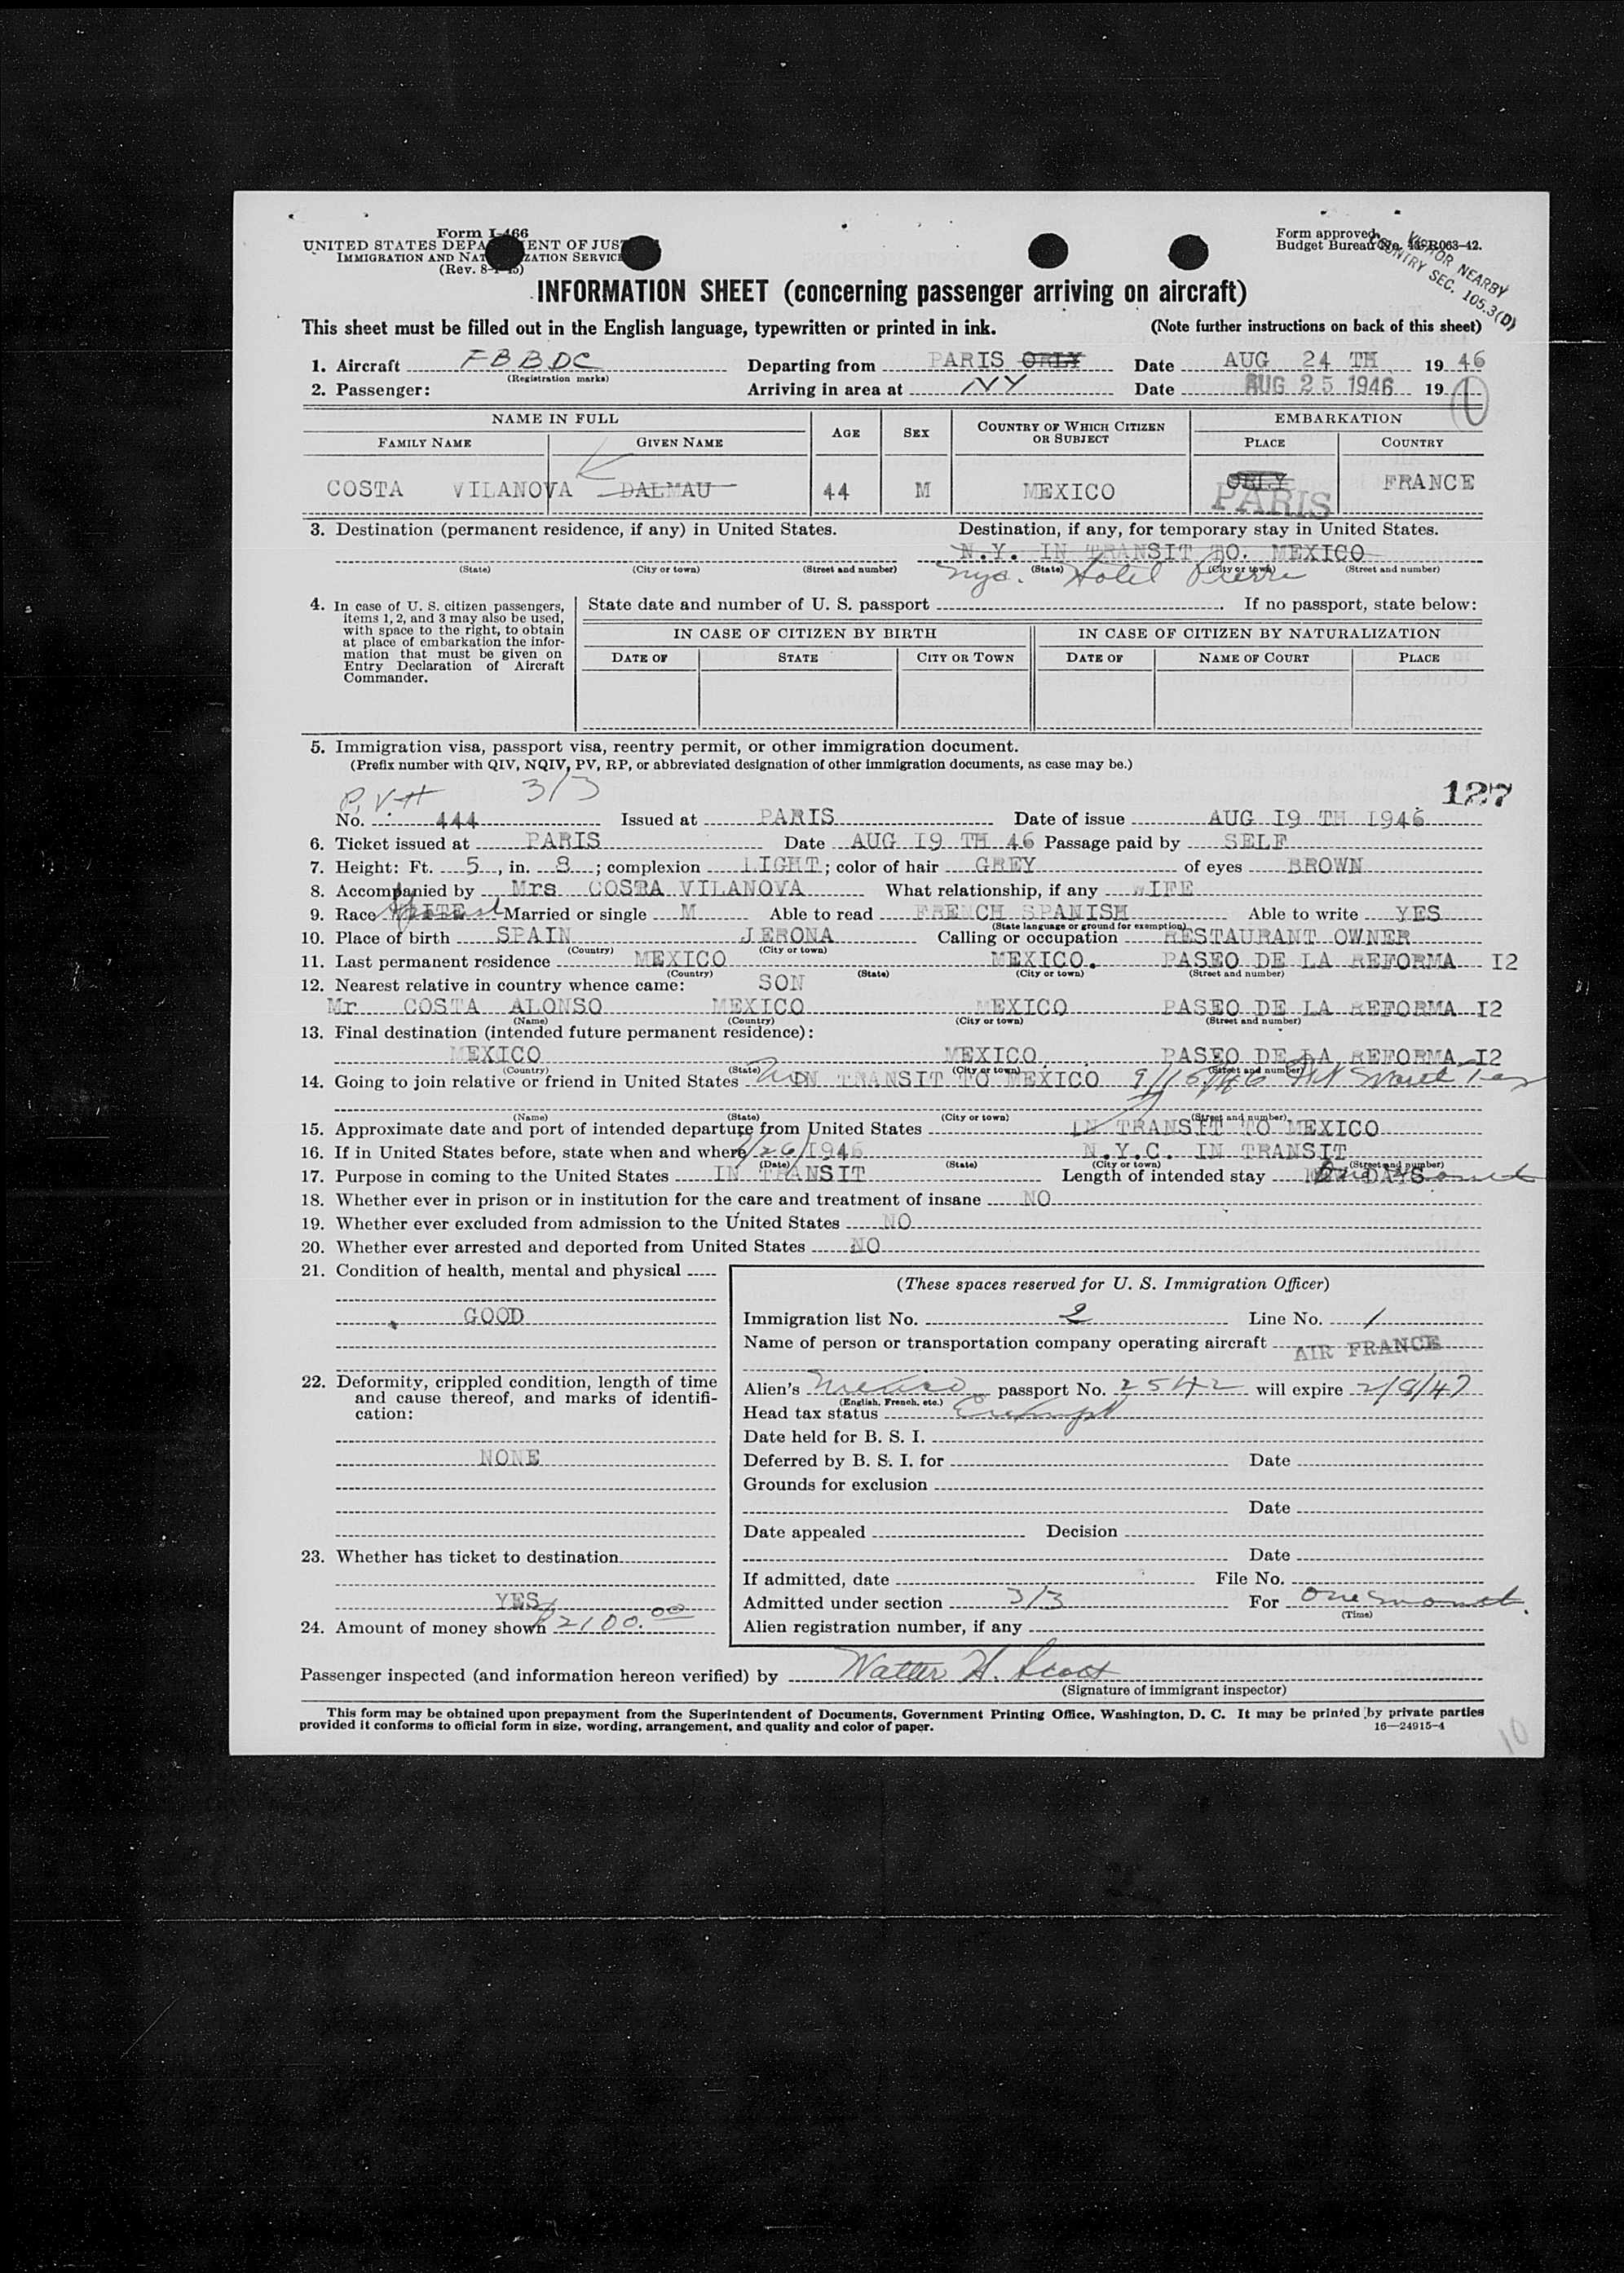 Form I-466
UNITED STATES DEPA ENT OF JUS
IMMIGRATION AND NAT ZATION SERVICE
(Rev. 8-1-45)
Form approved.
Budget Bureau No. 43-R063-42.
VISITOR NEARBY
COUNTRY SEC. 105.3(D)
INFORMATION SHEET (concerning passenger arriving on aircraft)
This sheet must be filled out in the English language, typewritten or printed in ink. (Note further instructions on back of this sheet)
1. Aircraft FBBDC Departing from PARIS ORLY Date AUG 24 TH 1946
(Registration marks)
2. Passenger: Arriving in area at NY Date AUG 25 1946 19
NAME IN FULL AGE SEX COUNTRY OF WHICH CITIZEN OR SUBJECT EMBARKATION
FAMILY NAME GIVEN NAME PLACE COUNTRY
COSTA VILANOVA DALMAU 44 M MEXICO ORLY PARIS FRANCE
3. Destination (permanent residence, if any) in United States. Destination, if any, for temporary stay in United States.
N.Y. IN TRANSIT TO. MEXICO
(State) (City or town) (Street and number) (State) (City or town) (Street and number)
Nyc. Hotel Pierre
4. In case of U. S. citizen passengers, items 1, 2, and 3 may also be used, with space to the right, to obtain at place of embarkation the information that must be given on Entry Declaration of Aircraft Commander.
State date and number of U. S. passport If no passport, state below:
IN CASE OF CITIZEN BY BIRTH IN CASE OF CITIZEN BY NATURALIZATION
DATE OF STATE CITY OR TOWN DATE OF NAME OF COURT PLACE
5. Immigration visa, passport visa, reentry permit, or other immigration document.
(Prefix number with QIV, NQIV, PV, RP, or abbreviated designation of other immigration documents, as case may be.)
P.V.# 3/3 127
No. 444 Issued at PARIS Date of issue AUG I9 TH 1946
6. Ticket issued at PARIS Date AUG I9 TH 46 Passage paid by SELF
7. Height: Ft. 5, in. 8; complexion LIGHT; color of hair GREY of eyes BROWN
8. Accompanied by Mrs COSTA VILANOVA What relationship, if any WIFE
9. Race WHITE Spanish Married or single M Able to read FRENCH SPANISH Able to write YES
(State language or ground for exemption)
10. Place of birth SPAIN JERONA Calling or occupation RESTAURANT OWNER
(Country) (City or town)
11. Last permanent residence MEXICO MEXICO. PASEO DE LA REFORMA I2
(Country) (State) (City or town) (Street and number)
12. Nearest relative in country whence came: SON
Mr COSTA ALONSO MEXICO MEXICO PASEO DE LA REFORMA I2
(Name) (Country) (City or town) (Street and number)
13. Final destination (intended future permanent residence):
MEXICO MEXICO PASEO DE LA REFORMA I2
(Country) (State) (City or town) (Street and number)
14. Going to join relative or friend in United States IN TRANSIT TO MEXICO 9/15/46
(Name) (State) (City or town) (Street and number)
15. Approximate date and port of intended departure from United States IN TRANSIT TO MEXICO
16. If in United States before, state when and where 7/26/1946 N.Y.C. IN TRANSIT
(Date) (State) (City or town) (Street and number)
17. Purpose in coming to the United States IN TRANSIT Length of intended stay DAYS One month
18. Whether ever in prison or in institution for the care and treatment of insane NO
19. Whether ever excluded from admission to the United States NO
20. Whether ever arrested and deported from United States NO
21. Condition of health, mental and physical
GOOD
22. Deformity, crippled condition, length of time and cause thereof, and marks of identification:
NONE
23. Whether has ticket to destination
YES
24. Amount of money shown $2100.00
(These spaces reserved for U. S. Immigration Officer)
Immigration list No. 2 Line No. 1
Name of person or transportation company operating aircraft AIR FRANCE
Alien's Mexico passport No. 2542 will expire 2/9/47
(English, French, etc.)
Head tax status Exempt
Date held for B. S. I.
Deferred by B. S. I. for Date
Grounds for exclusion
Date
Date appealed Decision
Date
If admitted, date File No.
Admitted under section 3/3 For One month.
(Time)
Alien registration number, if any
Passenger inspected (and information hereon verified) by Walter H. Scott
(Signature of immigrant inspector)
This form may be obtained upon prepayment from the Superintendent of Documents, Government Printing Office, Washington, D. C. It may be printed by private parties
provided it conforms to official form in size, wording, arrangement, and quality and color of paper. 16—24915-4
10